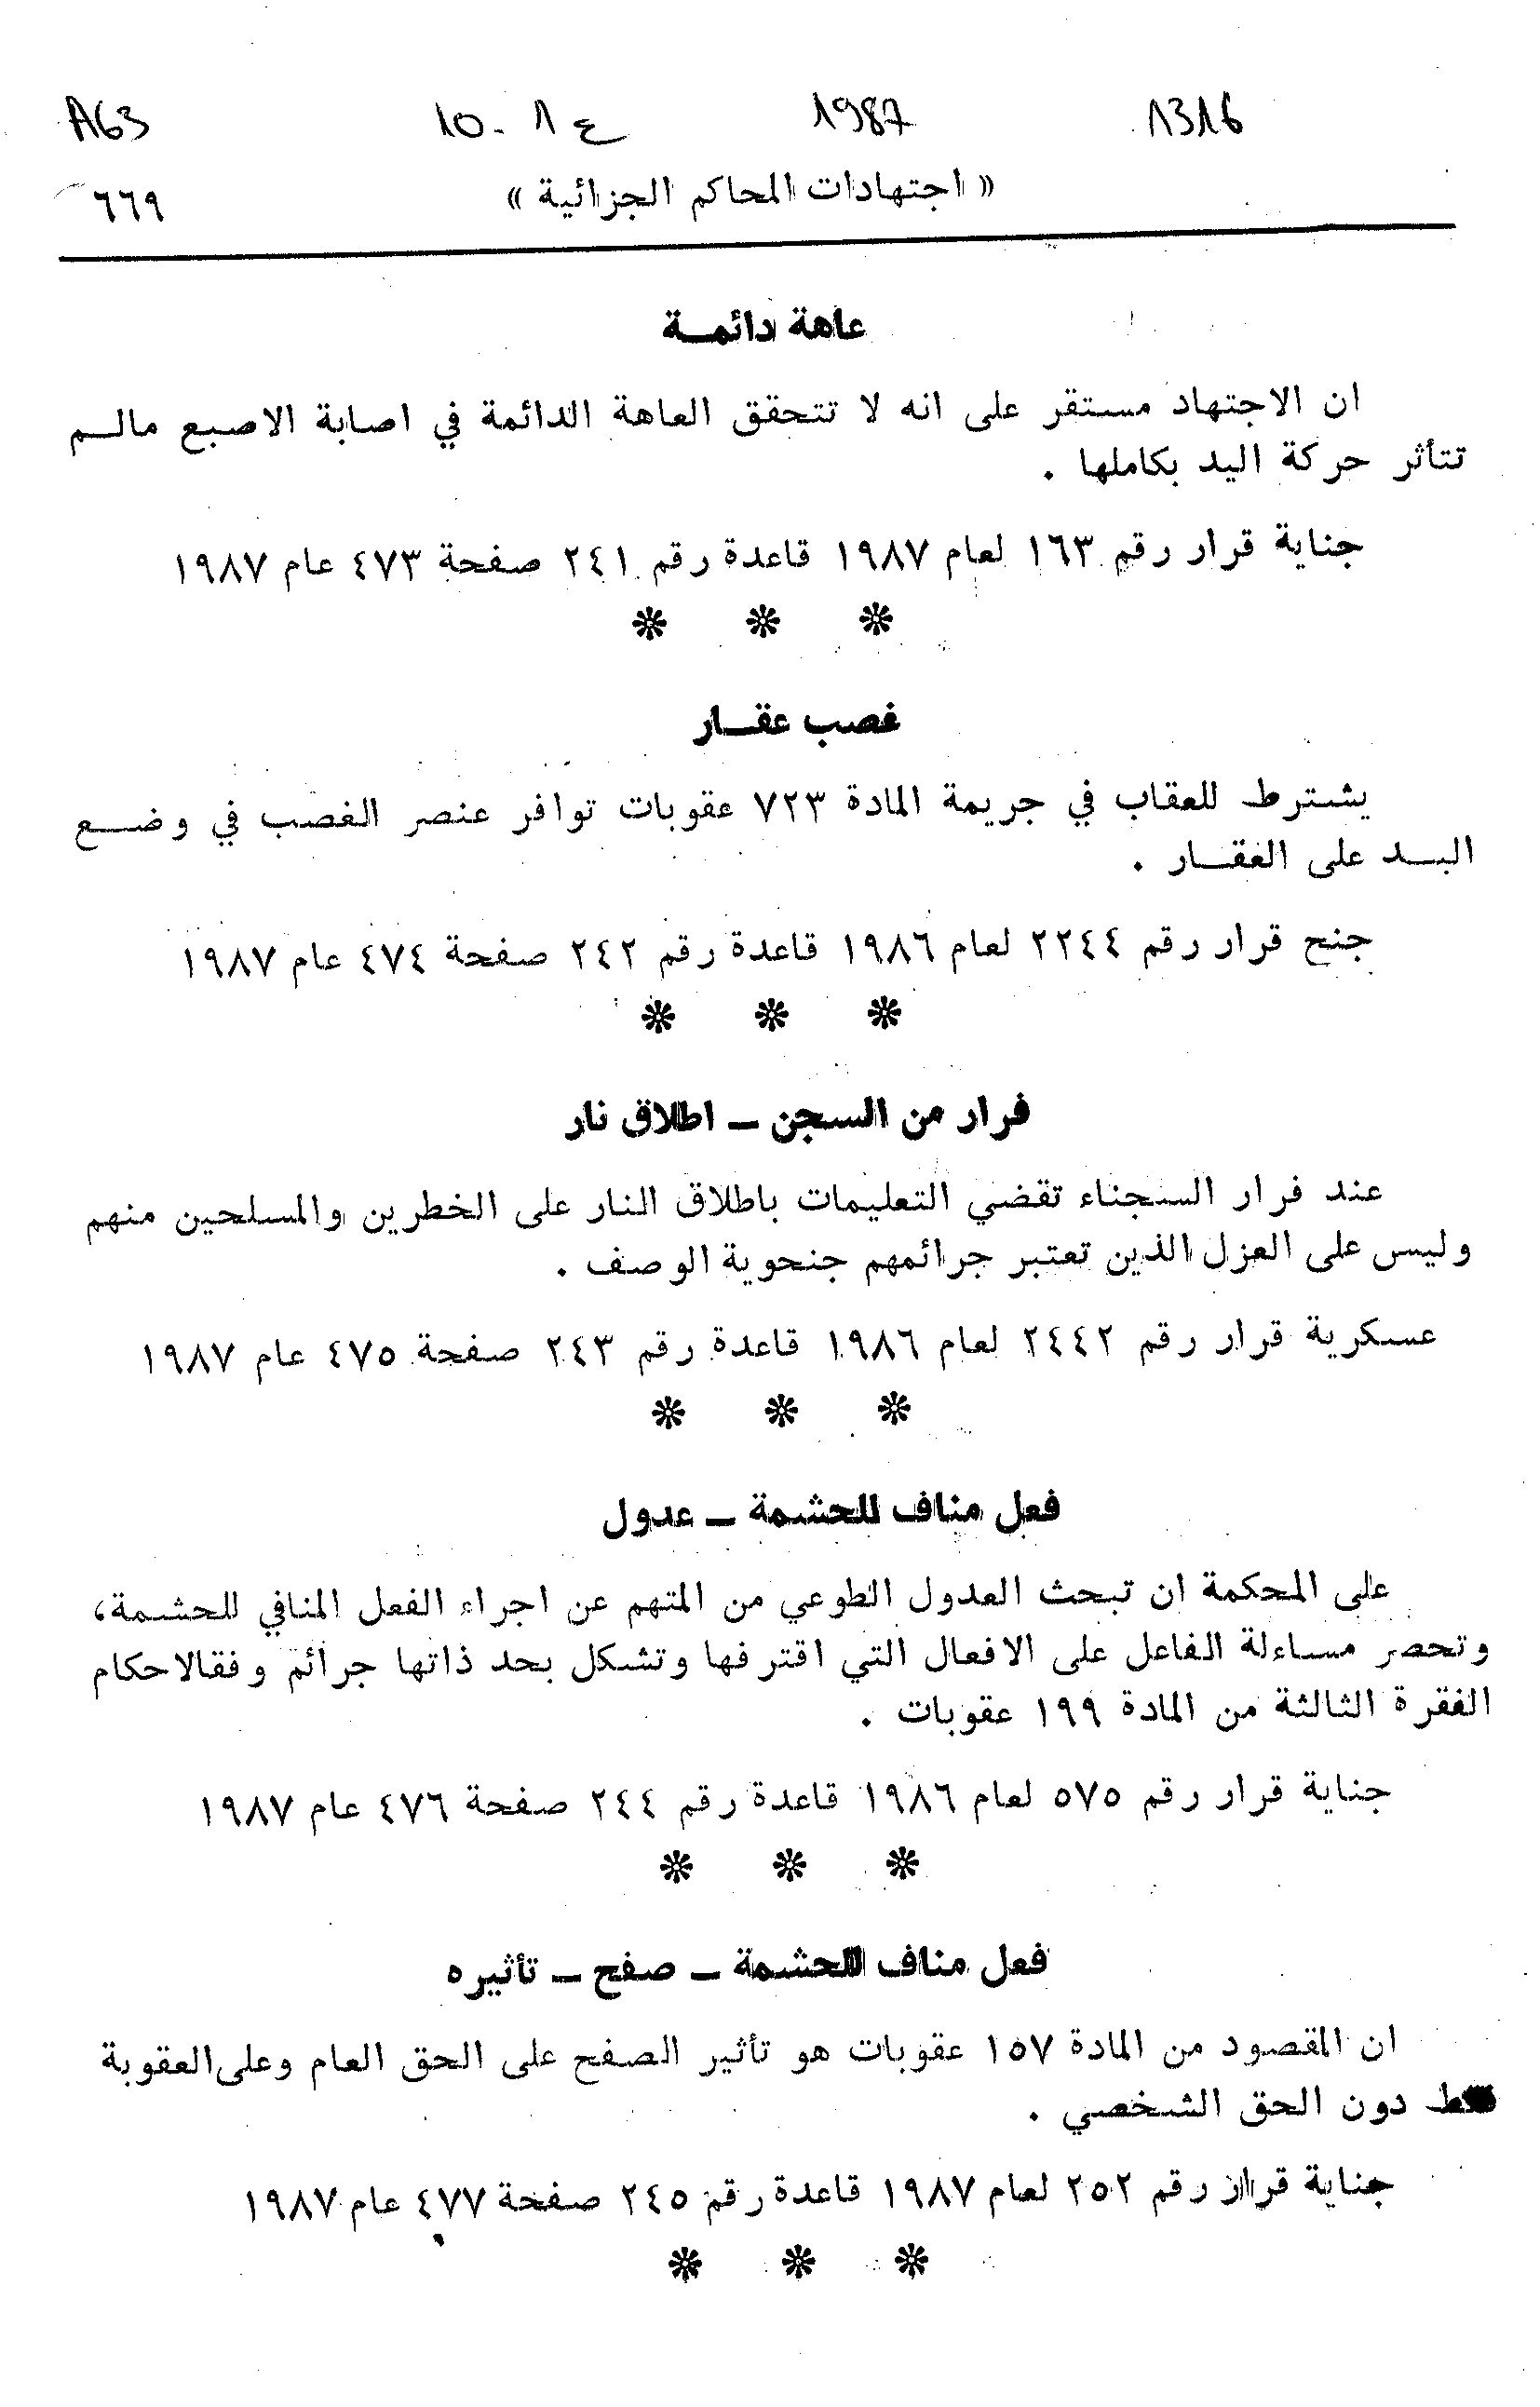 1316 1987 ع 1-10 A63
« اجتهادات المحاكم الجزائية » ٦٦٩
عاهة دائمــة
ان الاجتهاد مستقر على انه لا تتحقق العاهة الدائمة في اصابة الاصبع مالــم
تتأثر حركة اليد بكاملها .
جناية قرار رقم ١٦٣ لعام ١٩٨٧ قاعدة رقم ٢٤١ صفحة ٤٧٣ عام ١٩٨٧
* * *
غصب عقــار
يشترط للعقاب في جريمة المادة ٧٢٣ عقوبات توافر عنصر الغصب في وضــع
اليــد على العقــار .
جنح قرار رقم ٢٢٤٤ لعام ١٩٨٦ قاعدة رقم ٢٤٢ صفحة ٤٧٤ عام ١٩٨٧
* * *
فرار من السجن ــ اطلاق نار
عند فرار السجناء تقضي التعليمات باطلاق النار على الخطرين والمسلحين منهم
وليس على العزل الذين تعتبر جرائمهم جنحوية الوصف .
عسكرية قرار رقم ٢٤٤٢ لعام ١٩٨٦ قاعدة رقم ٢٤٣ صفحة ٤٧٥ عام ١٩٨٧
* * *
فعل مناف للحشمة ــ عدول
على المحكمة ان تبحث العدول الطوعي من المتهم عن اجراء الفعل المنافي للحشمة،
وتحصر مساءلة الفاعل على الافعال التي اقترفها وتشكل بحد ذاتها جرائم وفقالاحكام
الفقرة الثالثة من المادة ١٩٩ عقوبات .
جناية قرار رقم ٥٧٥ لعام ١٩٨٦ قاعدة رقم ٢٤٤ صفحة ٤٧٦ عام ١٩٨٧
* * *
فعل مناف للحشمة ــ صفح ــ تأثيره
ان المقصود من المادة ١٥٧ عقوبات هو تأثير الصفح على الحق العام وعلى العقوبة
دون الحق الشخصي .
جناية قرار رقم ٢٥٢ لعام ١٩٨٧ قاعدة رقم ٢٤٥ صفحة ٤٧٧ عام ١٩٨٧
* * *